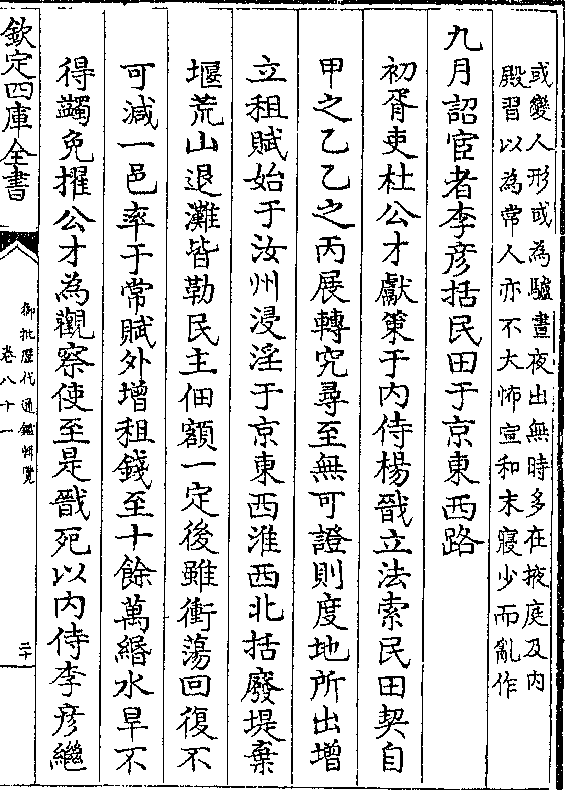 或變人形或為驢晝夜出無時多在掖庭及内
殿習以為常人亦不大怖宣和末寢少而亂作
九月詔宦者李彦括民田于京東西路
初胥吏杜公才獻策于内侍楊戩立法索民田契自
甲之乙乙之丙展轉究尋至無可證則度地所出增
立租賦始于汝州浸淫于京東西淮西北括廢堤棄
堰荒山退灘皆勒民主佃額一定後雖衝蕩回復不
可減一邑率于常賦外增租錢至十餘萬緡水旱不
得蠲免擢公才為觀察使至是戩死以内侍李彦繼
欽定四庫全書
御批歴代通鑑輯覽
卷八十一
三十